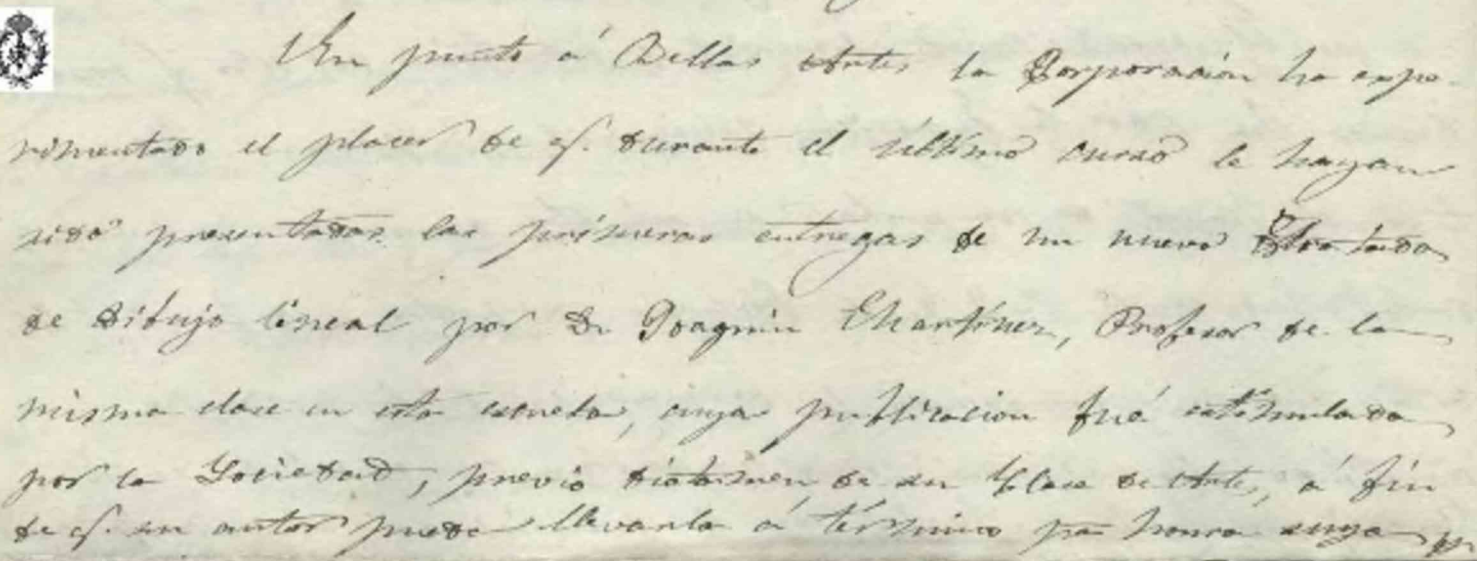 En punto á Bellas Artes la Corporación ha espe-
rimentado el placer de q. durante el último curso le hayan
sido presentadas las primeras entregas de un nuevo Tratado
de Dibujo lineal por Dn Joaquin Martinez, Profesor de la
misma clase en esta escuela, cuya publicacion fué estimulada
por la Sociedad, previo dictamen de su Clase de Artes, á fin
de q. su autor pueda llevarla á término pa honra suya